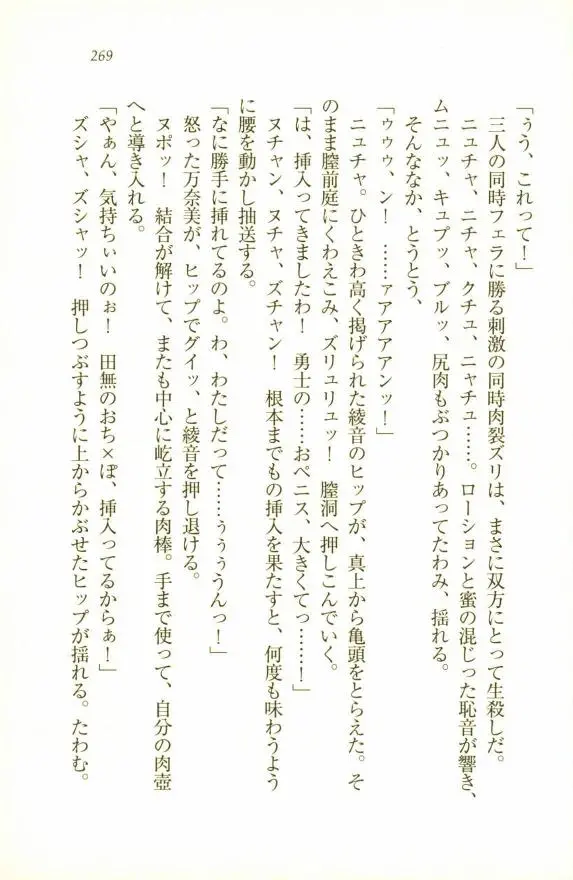 269
「ぅう、これって！」
三人の同時フェラに勝る刺激の同時肉裂ズリは、まさに双方にとって生殺しだ。
ニュチャ、ニチャ、クチュ、ニャチュ……。ローションと蜜の混じった恥音が響き、
ムニュッ、キュプッ、ブルッ、尻肉もぶつかりあってたわみ、揺れる。
そんななか、とうとう、
「ゥゥゥ、ン！　……ァアアアアンッ！」
ニュチャ。ひときわ高く掲げられた綾音のヒップが、真上から亀頭をとらえた。そ
のまま膣前庭にくわえこみ、ズリュリュッ！　膣洞へ押しこんでいく。
「は、挿入ってきましたわ！　勇士の……おペニス、大きくてっ……！」
ヌチャン、ヌチャ、ズチャン！　根本までもの挿入を果たすと、何度も味わうよう
に腰を動かし抽送する。
「なに勝手に挿れてるのよ。わ、わたしだって……ぅぅぅうんっ！」
怒った万奈美が、ヒップでグイッ、と綾音を押し退ける。
ヌポッ！　結合が解けて、またも中心に屹立する肉棒。手まで使って、自分の肉壺
へと導き入れる。
「やぁん、気持ちぃいのぉ！　田無のおち×ぽ、挿入ってるからぁ！」
ズシャ、ズシャッ！　押しつぶすように上からかぶせたヒップが揺れる。たわむ。